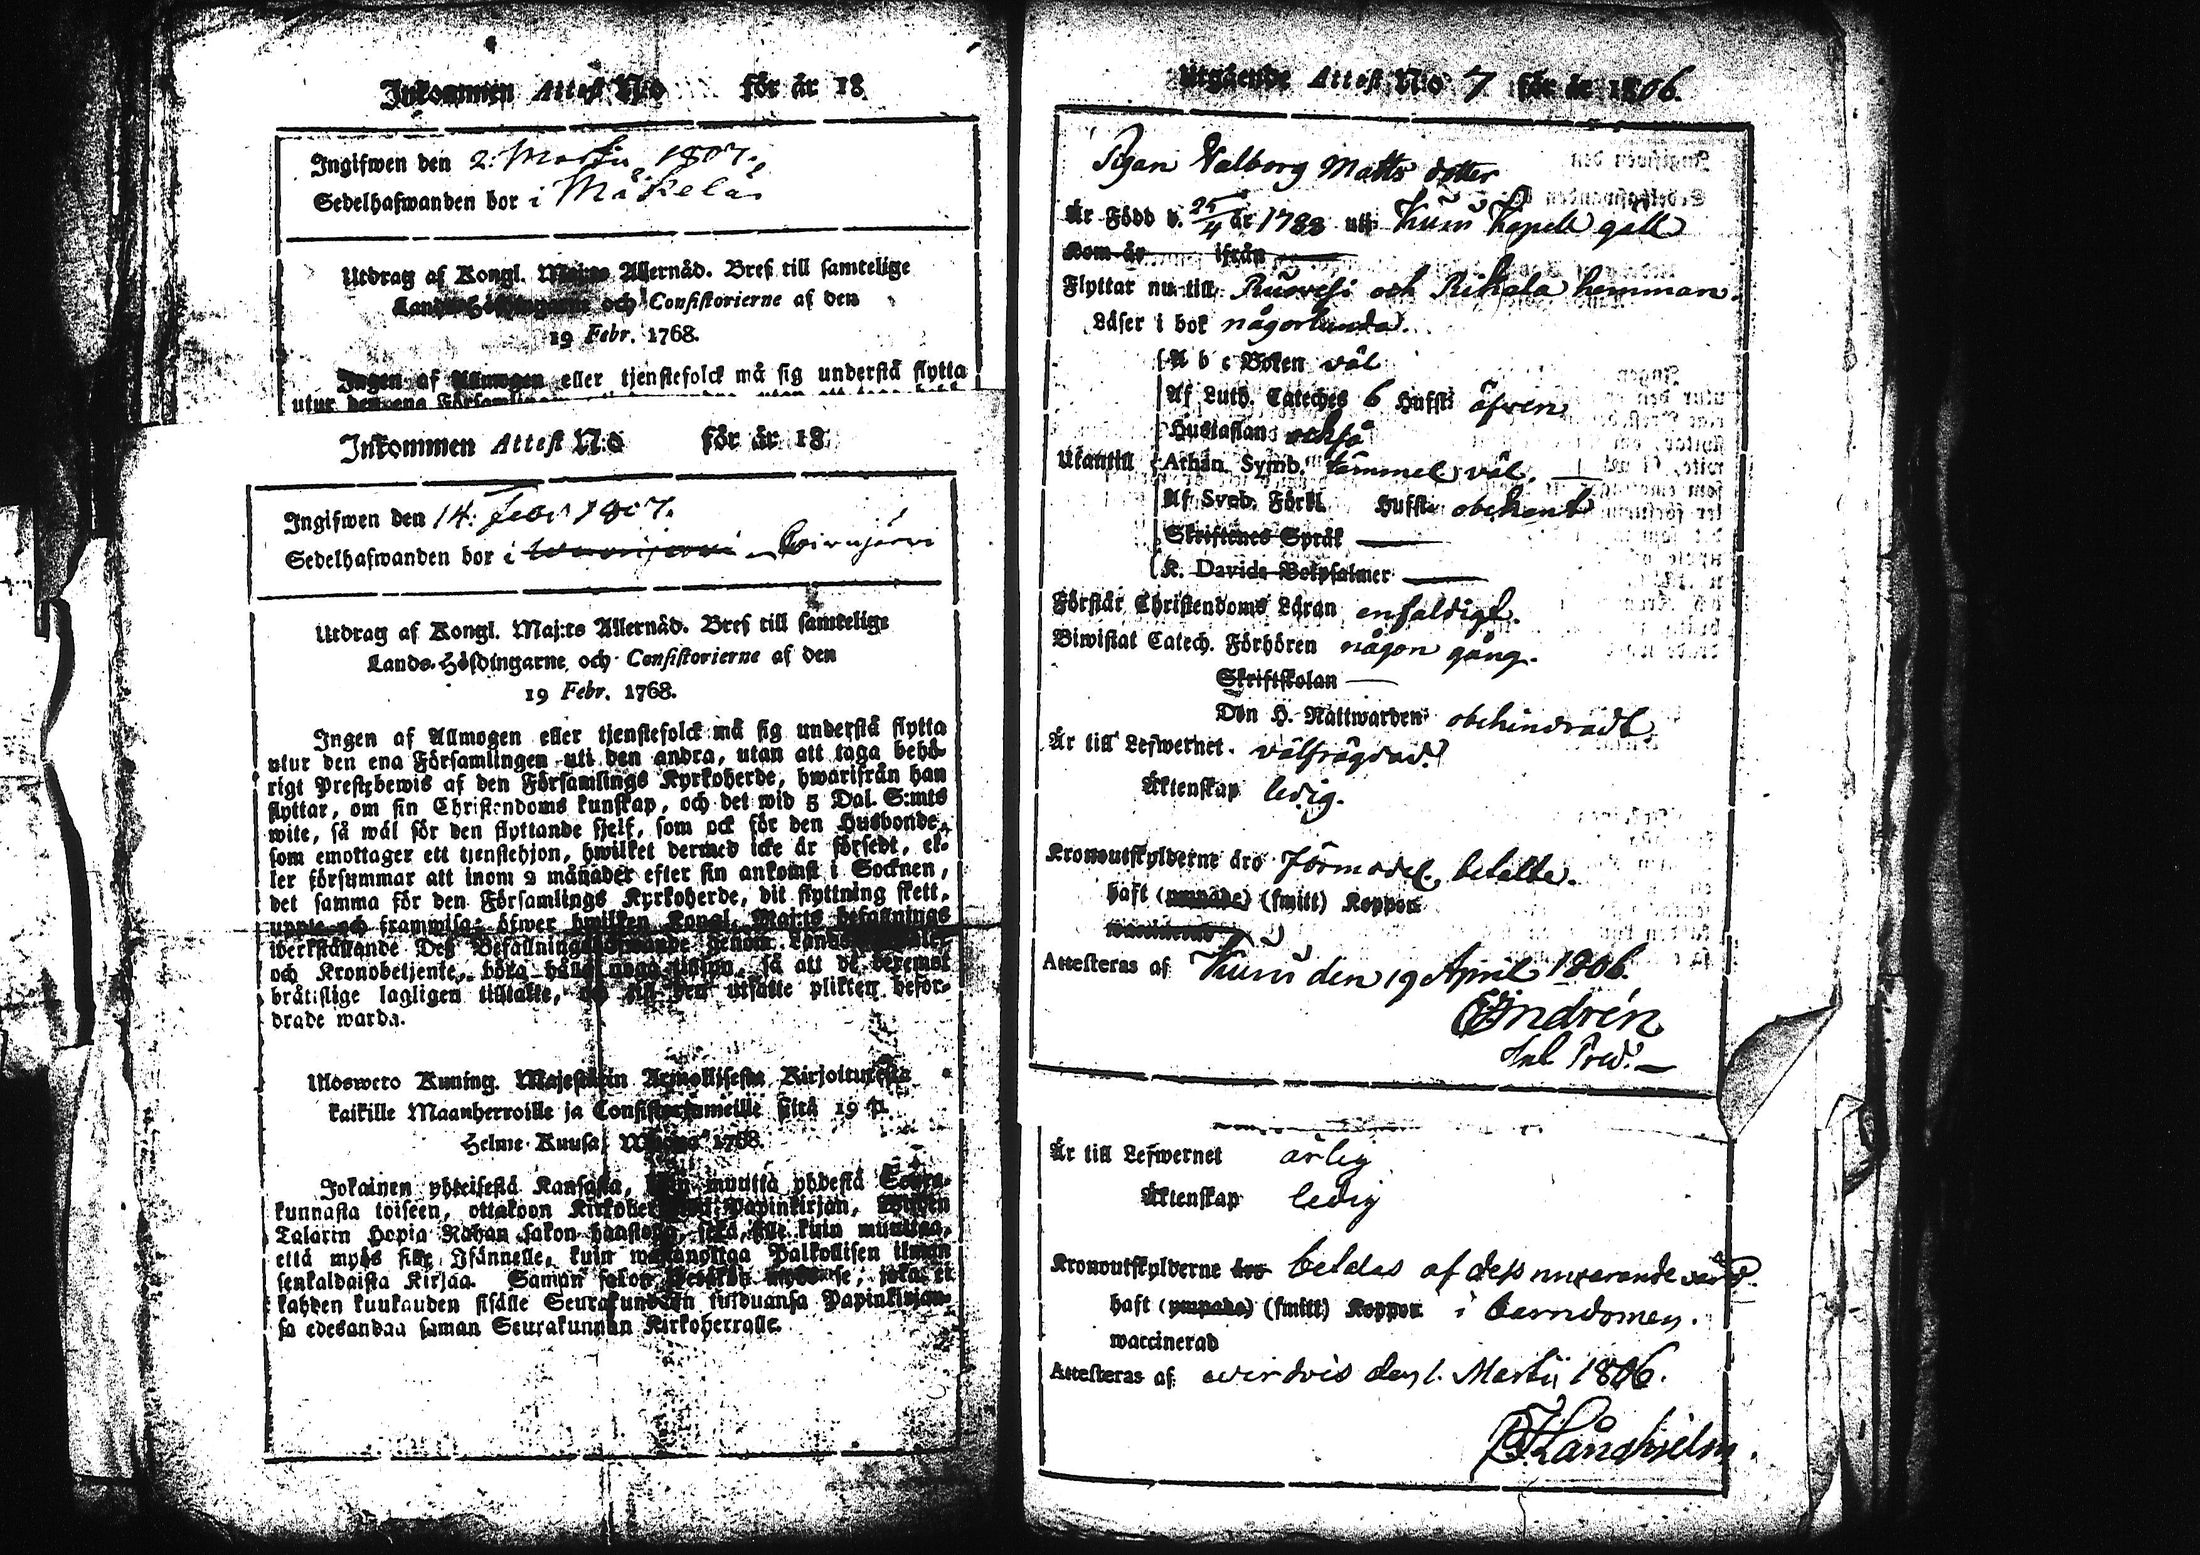 Inkommen Attest N:o för år 18
Ingifwen den 2: Martii 1807.
Sedelhafwanden bor i Mäkelä
Utdrag af Kongl. Maj:ts Allernåd. Bref till samtelige
Lands-Höfdingarne och Consistorierne af den
19 Febr. 1768.
Ingen af Allmogen eller tjenstefolck må sig understå flytta
utur den ena Församlingen
Inkommen Attest N:o för år 18
Ingifwen den 14. Febr 1807.
Sedelhafwanden bor i
Utdrag af Kongl. Maj:ts Allernåd. Bref till samtelige
Lands-Höfdingarne och Consistorierne af den
19 Febr. 1768.
Ingen af Allmogen eller tjenstefolck må sig understå flytta
utur den ena Församlingen uti den andra, utan att taga behö-
rigt Prestebewis af den Församlings Kyrkoherde, hwarifrån han
flyttar, om sin Christendoms kunskap, och det wid 5 Dal. S:mts
wite, så wäl för den flyttande sjelf, som ock för den Husbonde,
som emottager ett tjenstehjon, hwilket dermed icke är försedt, el-
ler försummar att inom 2 månader efter sin ankomst i Socknen,
det samma för den Församlings Kyrkoherde, dit flyttning skett,
uppte och framwisa; öfwer hwilken Kongl. Maj:ts befallnings
werkställande Deß Befallningshafwande genom Lands
och Kronobetjente, böra hålla noga tillsyn, så att de deremot
brätslige lagligen tilltalte, och till den utsatte plikten befor-
drade warda.
Ulosweto Kuning. Majestätin Armollisesta Kirjoituxesta
kaikille Maanherroille ja Consistoriumeille siitä 19 p.
Helme-Kuusa, Wuonna 1768.
Jokainen yhteisestä Kansasta, kuin muuttä yhdestä Seura-
kunnasta toiseen, ottakoon Kirkoherralta Papinkirjan, Wiiden
Talarin Hopia Rahan sakon haastolla, sekä sille kuin muuttaa,
että myös sille Isännelle, kuin wastanottaa Palkollisen ilman
senkaldaista Kirjaa. Saman sakon myös se, joka ei
kahden kuukauden sisälle Seurakundaan tulduansa Papinkirjan-
sa edesandaa saman Seurakunnan Kirkoherralle.
Utgående Attest N:o 7 för år 1806.
Pigan Valborg Matts dotter
Är Född d. 25/4 år 1788 uti Kuru Kapell gäll
Kom år ifrån
Flyttar nu till Ruovesi och Rihala hemman.
Läser i bok någorlunda.
A b c Boken väl
Af Luth. Cateches 6 Hufst: äfven
Hustaflan också
Utantill Athan. Symb. tämmel. väl.
Af Sveb. Förkl. Hufst. obekant
Skriftenes Språk
K. Davids Botpsalmer
Förstår Christendoms Läran enfaldigt.
Biwistat Catech. Förhören någon gång.
Skriftskolan
Den H. Nattwarden obehindradt.
Är till Lefwernet välfrägdad.
Äktenskap ledig.
Kronoutskylderne äro Förmodel. betalte.
haft (ympade) (smitt) Koppor
Attesteras af Kuru den 19 April 1806.
Är till Lefwernet ärlig
Äktenskap ledig
Kronoutskylderne äro betalas af dess nuvarande värd.
haft (ympade) (smitt) Koppor i barndomen.
waccinerad
Attesteras af Wirdois den 1. Martii 1806.